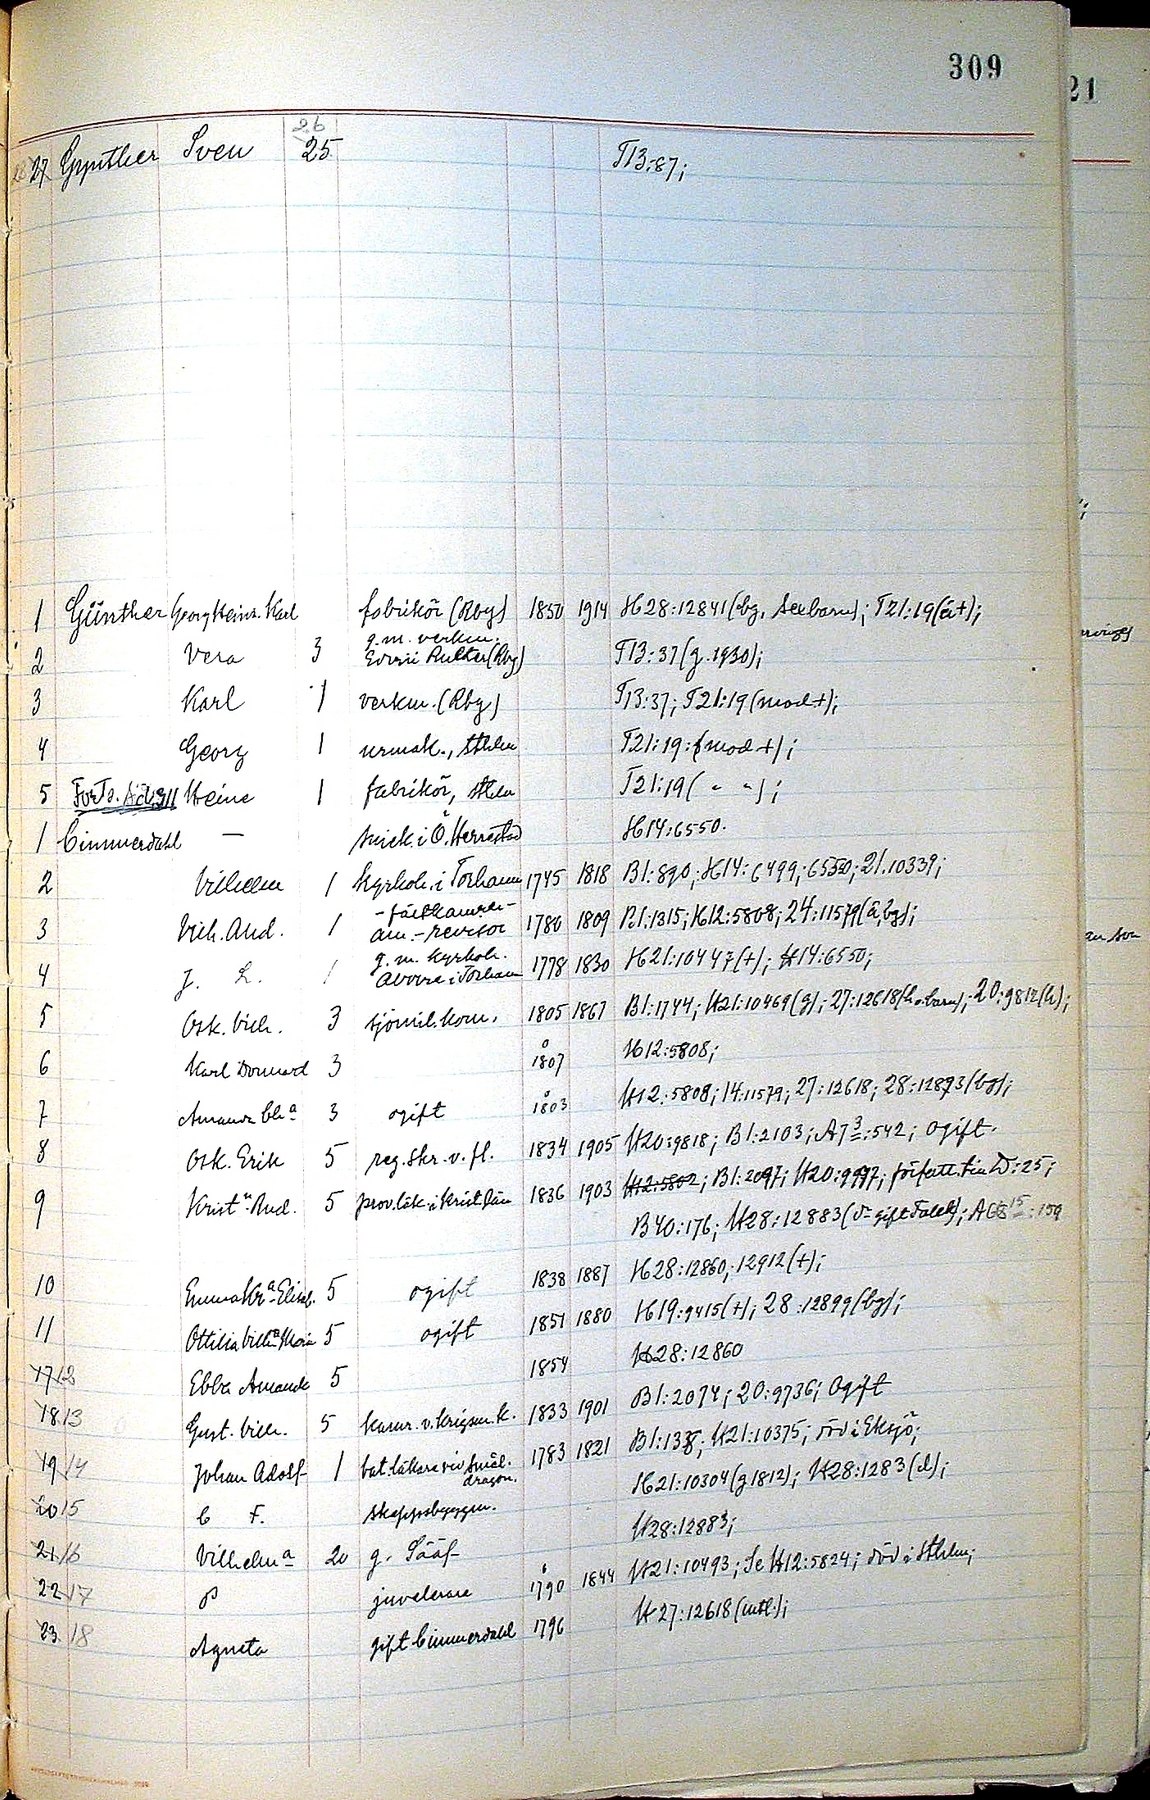 309
21
26
27 Gynther Sven 25 T13:87;
1 Günther Georg Heinr. Karl fabrikör (Rbg) 1850 1914 H28:12841 (bg, barn); T21:19 (å+);
g.m. verkm.
2 Vera 3 (Rbg) T13:37 (g. 1930);
3 Karl 1 verkm. (Rbg) T13:37; T21:19 (mod+);
4 Georg 1 urmak., Sthlm T21:19: (mod +);
5 311 Heine 1 fabrikör, Sthlm T21:19 ( " " );
1 Cimmerdahl — i Ö. Herrestad H14:6550.
2 Vilhelm 1 kyrkoh. i Torhamn 1745 1818 B1:890; H14:6499; 6550; 21:10339;
3 Vilh. And. 1 am.-revisor 1780 1809 B1:1315; H12:5808; 24:11579 (å, bg);
g.m. kyrkoh.
4 J. L. 1 i Torhamn 1778 1830 H21:10447 (+); H14:6550;
5 Osk. Vilh. 3 sjömil.kom. 1805 1867 B1:1744; H21:10469 (g); 27:12618 (h. o. barn); 20:9812 (h);
6 Karl 3 1807 H12:5808;
7 Amanda 3 ogift 1803 H12:5808; 14:11579; 27:12618; 28:12873 (bg);
8 Osk. Erik 5 reg.skr. v. fl. 1834 1905 H20:9818; B1:2103; A7³:542; ogift.
9 Krist.n Aud. 5 prov.läk. i Krist.län 1836 1903 H12:5802; B1:2097; H20:9997; författ. D:25;
B40:176; H28:12883
10 Emma Kra Elisab. 5 ogift 1838 1887 H28:12860; 12912 (+);
11 Ottilia Vilha Maria 5 ogift 1851 1880 H19:9415 (+); 28:12899 (bg);
17 12 Ebba Amanda 5 1854 H28:12860
18 13 Gust. Vilh. 5 kamr. v. krigsm.k. 1833 1901 B1:2074; 20:9736; Ogift
19 14 Johan Adolf 1 bat.läkare vid Smål. 1783 1821 B1:1338; H21:10375; död i Eksjö;
dragon. H21:10304 (g 1812); H28:1283 (d);
20 15 C F. skeppsbyggm. H28:12883;
21 16 Vilhelma 20 g. Sääf
22 17 P juvelerare 1790 1844 H21:10493; Se H12:5824; död i Sthlm;
23 18 Agneta gift Cimmerdahl 1796 H27:12618 (mtl.);